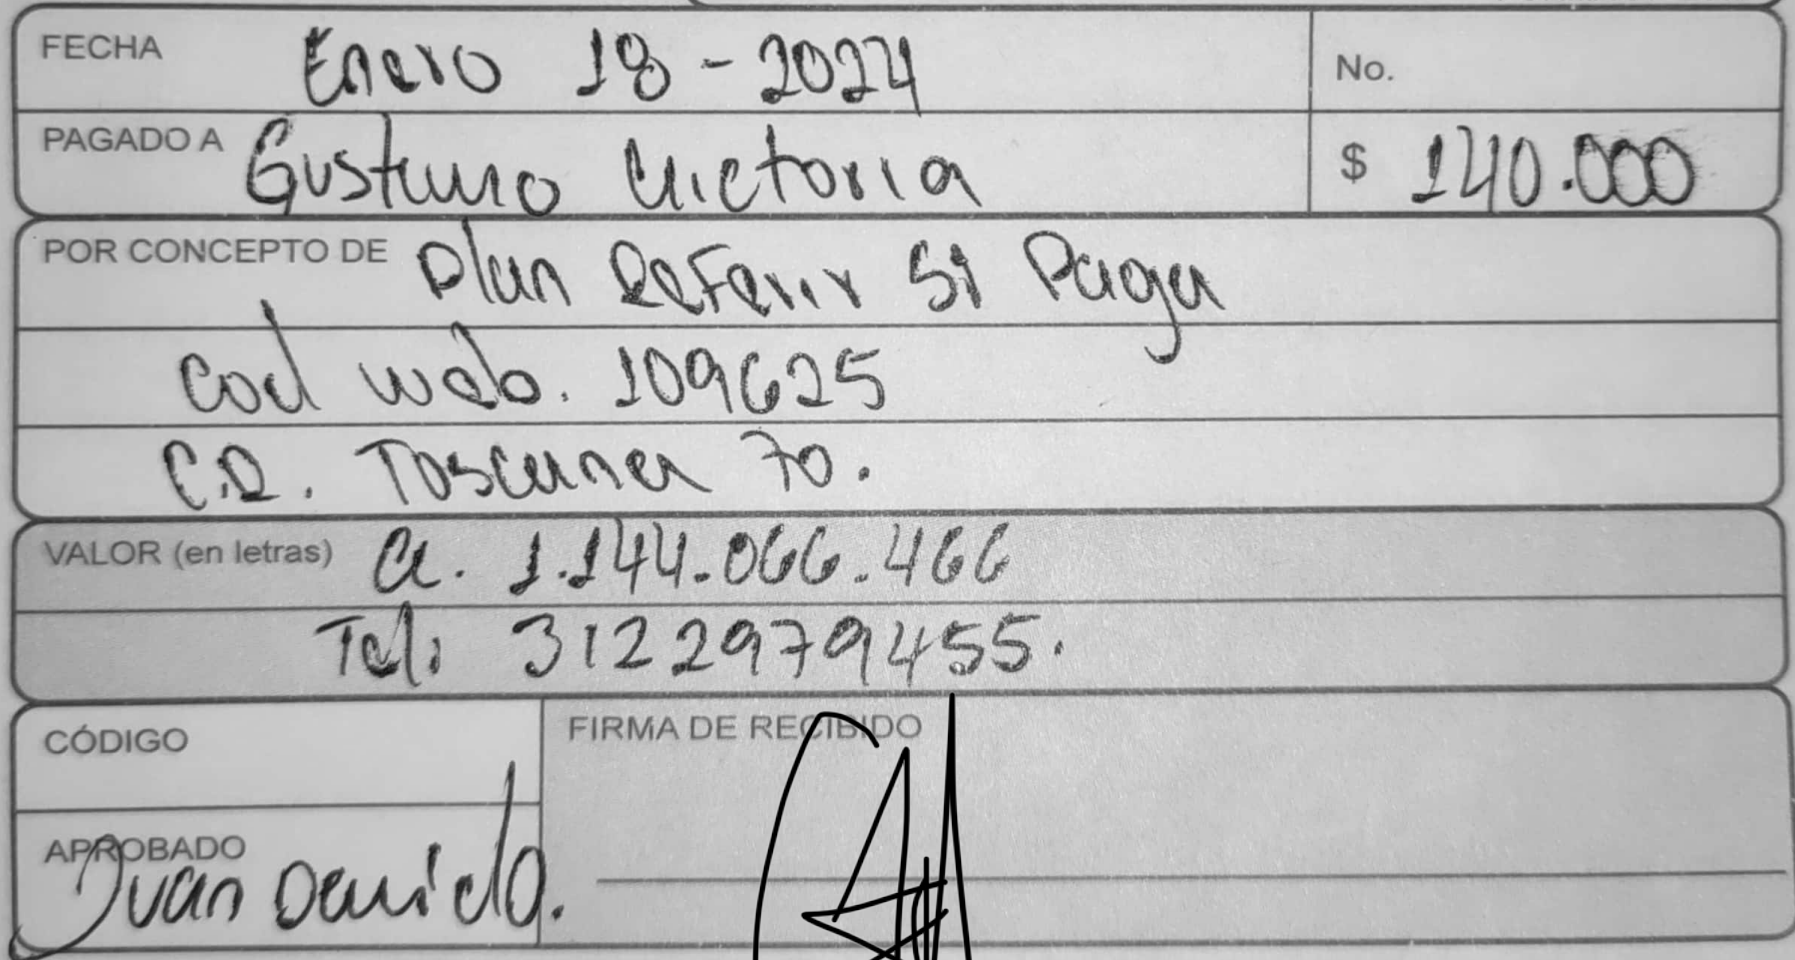 FECHA Enero 18 - 2024 No.
PAGADO A Gustavo Victoria $ 140.000
POR CONCEPTO DE Plan Referir Si Paga
Cod web. 109625
C.R. Toscana 70.
VALOR (en letras) CC. 1.144.066.466
Tel: 3122979455.
CÓDIGO FIRMA DE RECIBIDO
APROBADO Juan David O.